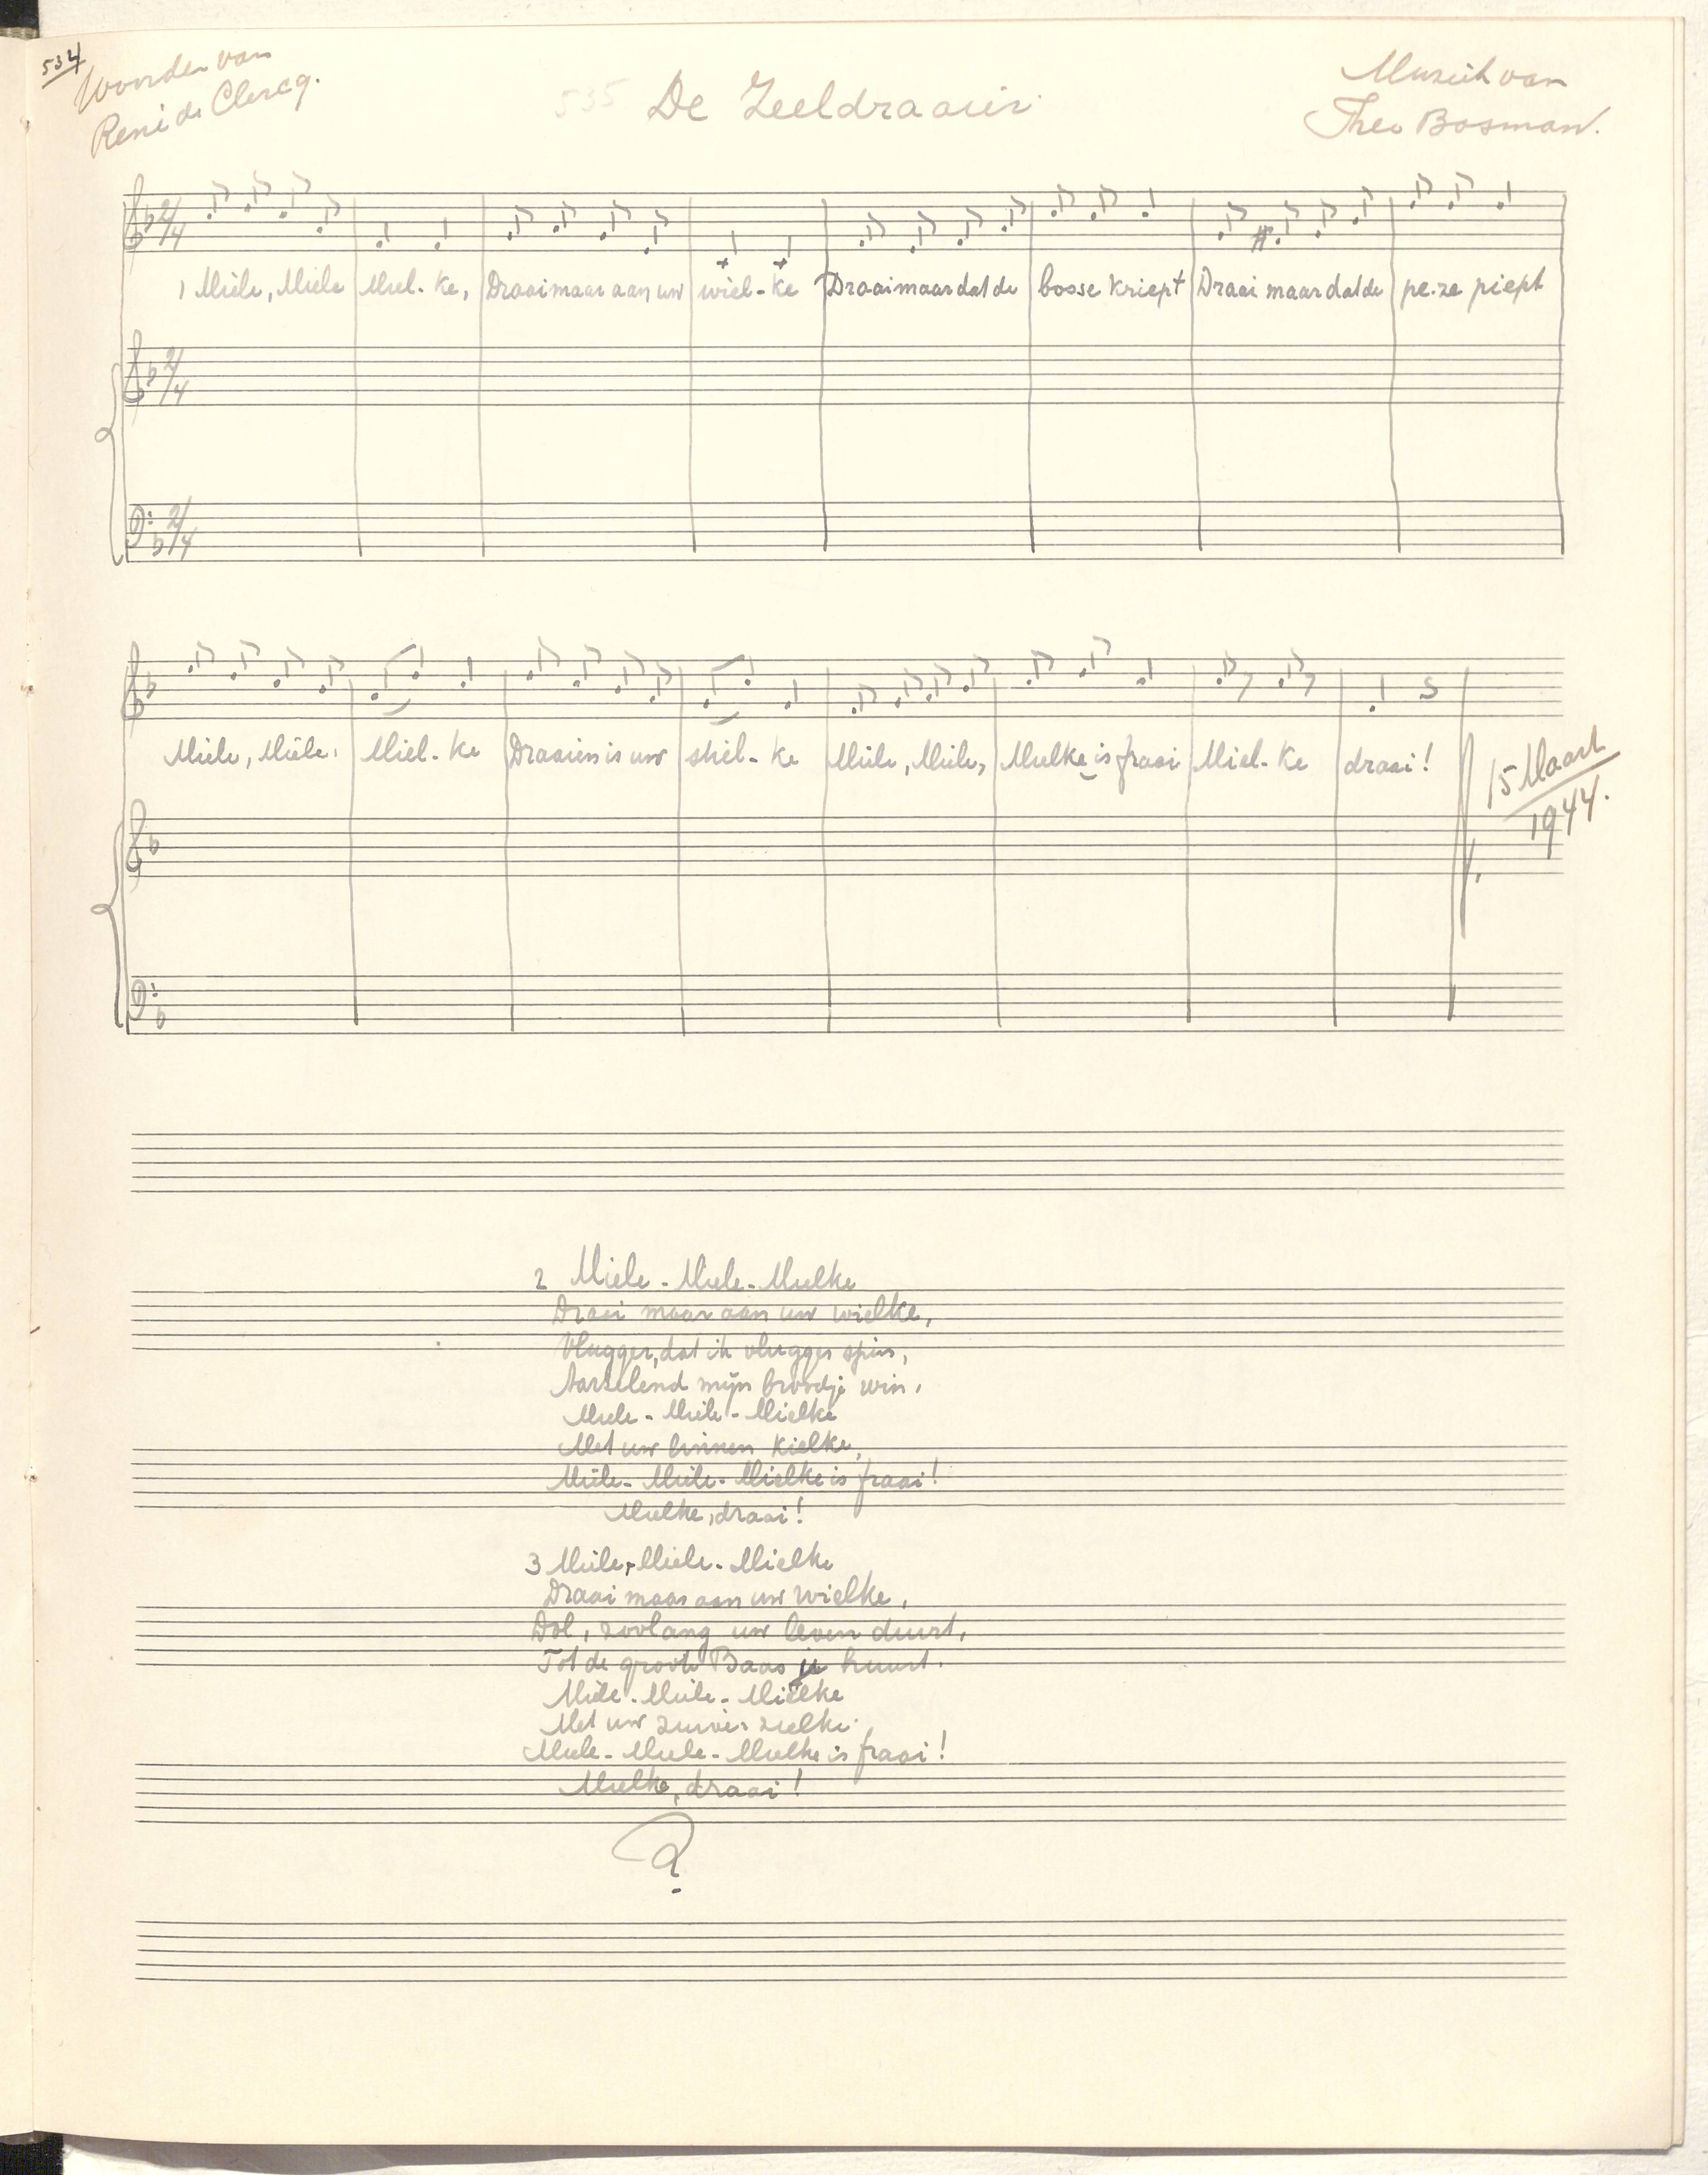 534
Woorden van
René de Clercq.
535 De Zeeldraaier
Muziek van
Theo Bosman.
1 Miele, Miele Miel-ke, Draai maar aan uw wiel-ke Draai maar dat de bosse kriept Draai maar dat de pe-ze piept
Miele, Miele, Miel-ke Draaien is uw stiel-ke Miele, Miele, Mielke is fraai Miel-ke draai!
15 Maart
1944.
2 Miele-Miele-Mielke
Draai maar aan uw wielke,
Vlugger, dat ik vlugger spin,
Aarzelend mijn broodje win,
Miele-Miele-Mielke
Met uw linnen kielke,
Miele-Miele-Mielke is fraai!
Mielke, draai!
3 Miele-Miele-Mielke
Draai maar aan uw wielke,
Dol, zoolang uw leven duurt,
Tot de groote Baas je huurt.
Miele-Miele-Mielke
Met uw zuiver zielke.
Miele-Miele-Mielke is fraai!
Mielke, draai!